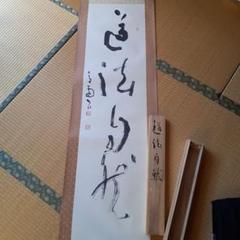 道法自然
道法自然